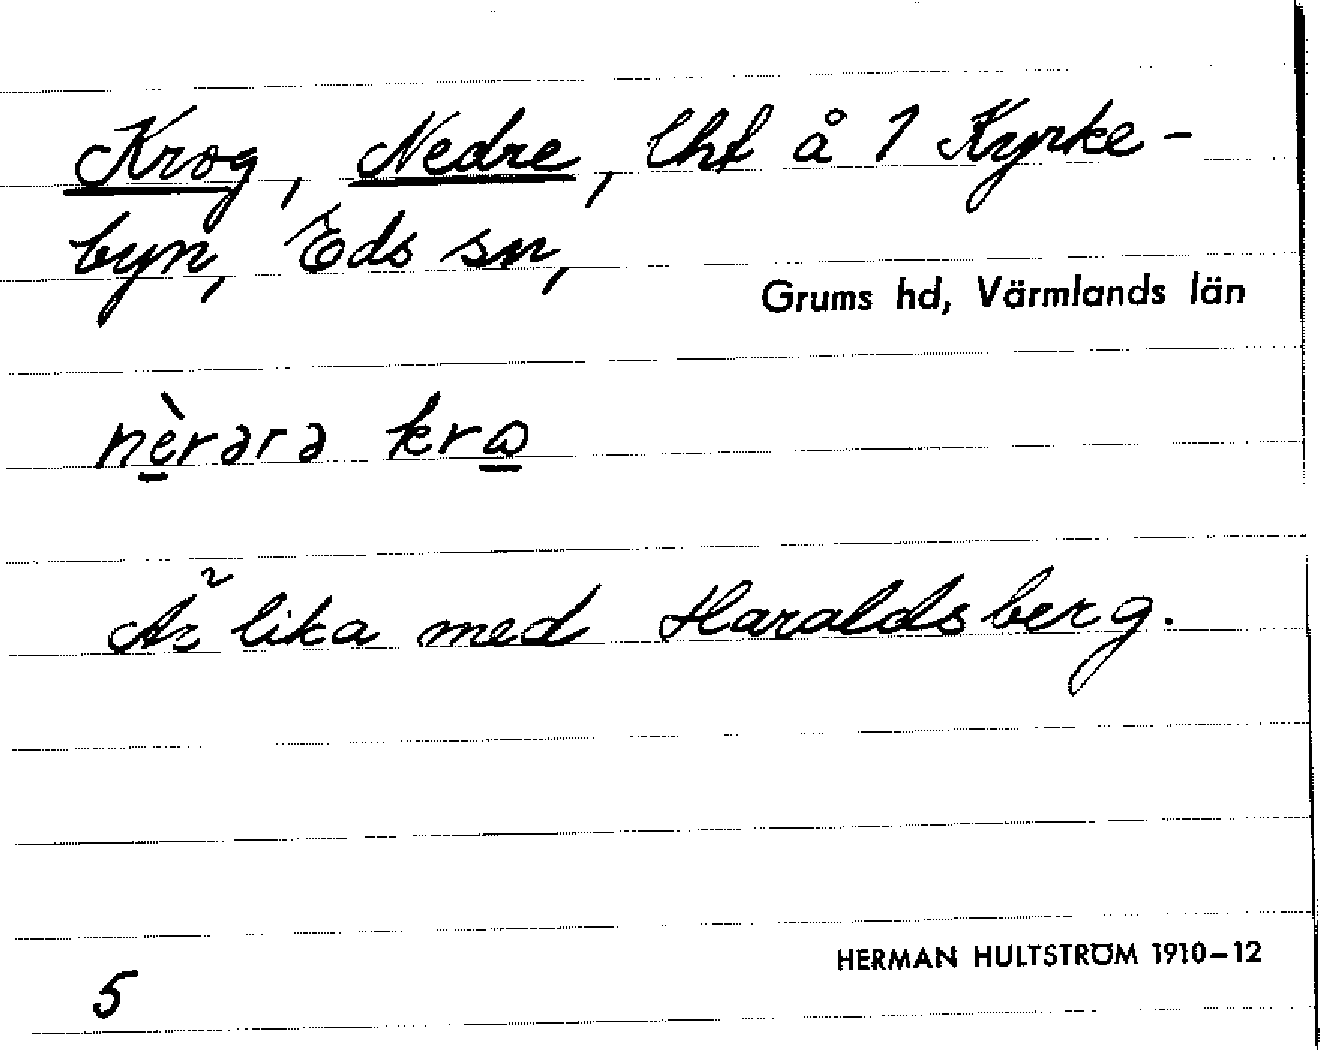 Krog, Nedre, lht å 1 Kyrke-
byn, Eds sn,
Grums hd, Värmlands län
nèrərə krɷ
Är lika med Haraldsberg.
HERMAN HULTSTRÖM 1910–12
5